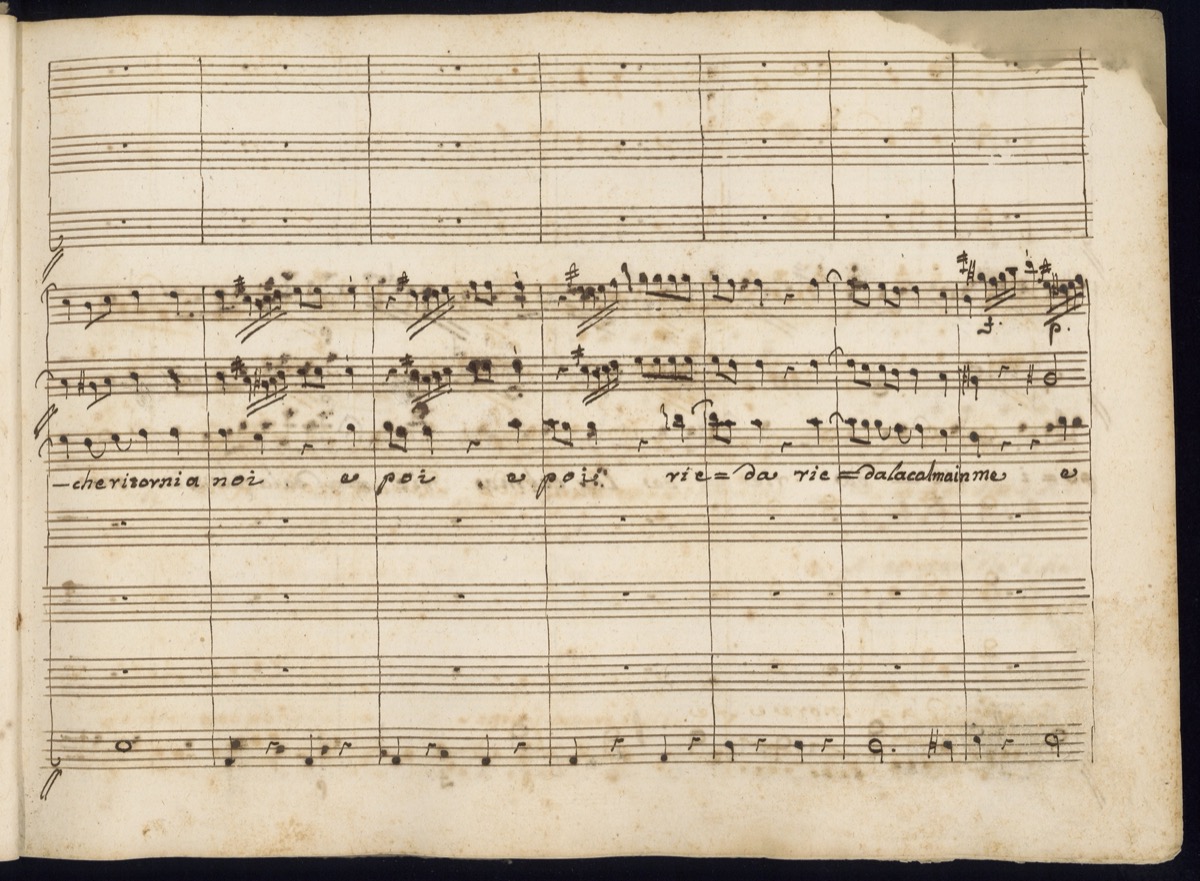 f. p.
—che ritornia noi e poi e poi rie = da rie = dalacalmainme e